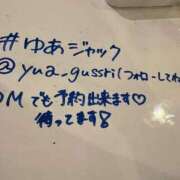 #ゆあジャック
@yua_gussri(フォローしてね
DMでも予約出来ます♡
待ってます!